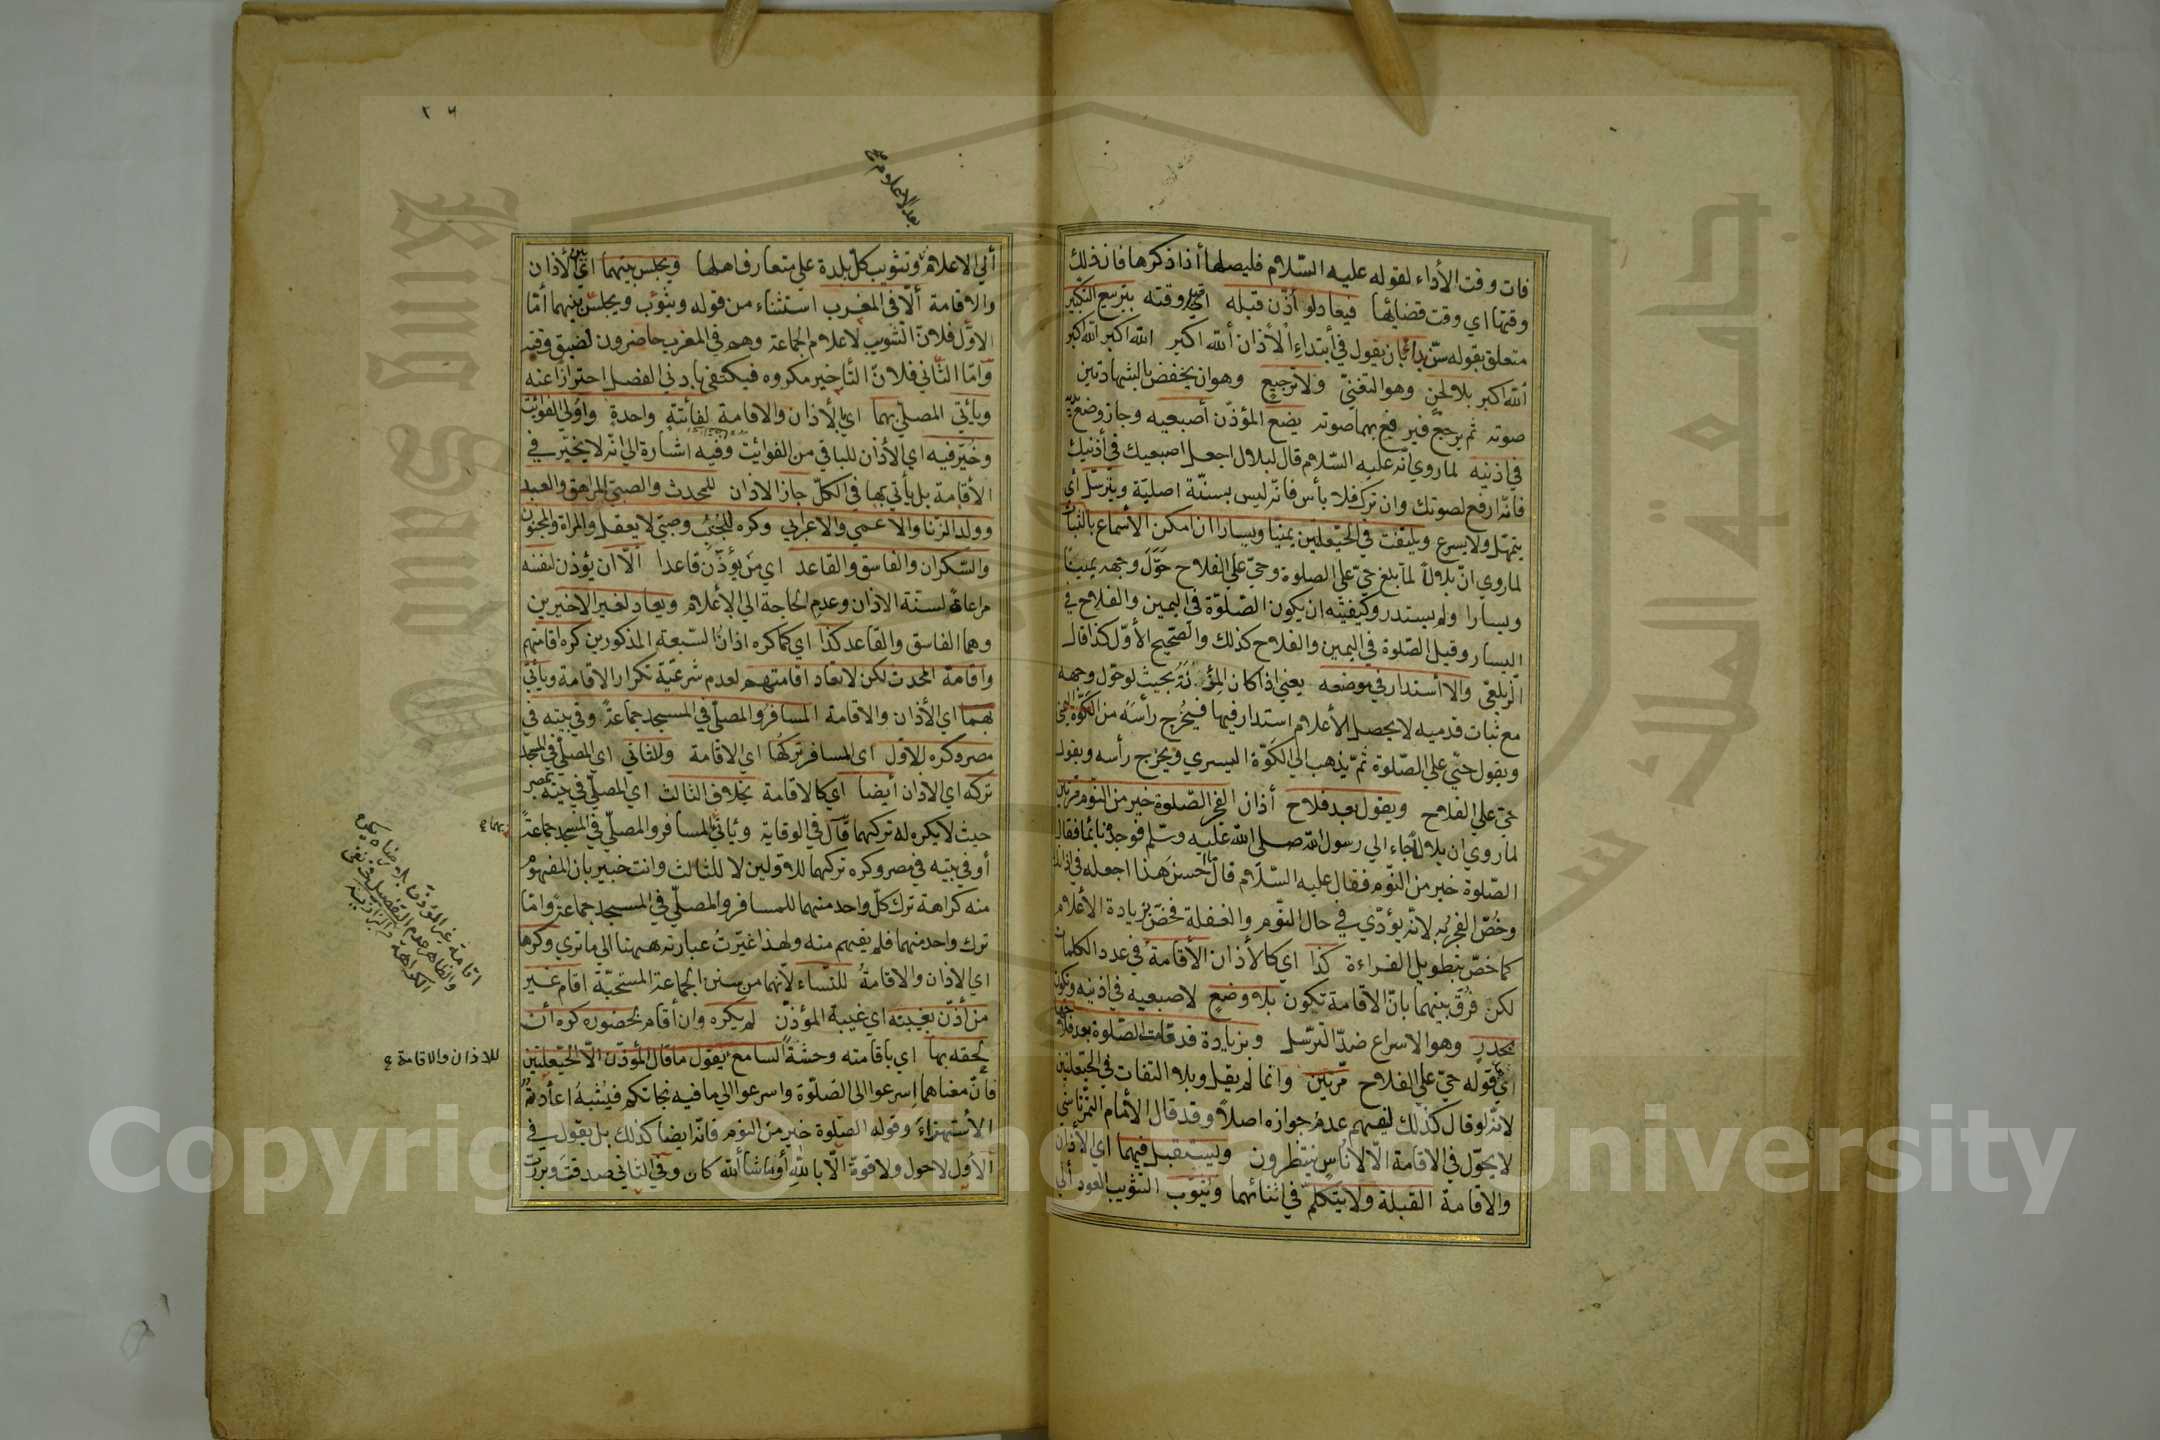 فات وقت الأداء لقوله عليه السّلام فليصلها أذا ذكرها فان ذلك
وقتها اي وقت قضائها فيعاد لو أذّن قبله اي قبل وقته بتربيع التكبير
متعلق بقوله سنّ بأن يقول في أبتداء الأذان ألله اكبر الله اكبر الله اكبر
ألله اكبر بلا لحن وهو التغنّي ولا ترجيع وهو ان يخفض بالشهادتين
صوته ثم يرجع فيرفع بهما صوته يضع المؤذّن أصبعيه وجاز وضع يديه
في اذنيه لما روي انّه عليه السّلام قال لبلال اجعل اصبعيك في أذنيك
فانّه ارفع لصوتك وان ترك فلا بأس فانّه ليس بسنّة اصليّة ويترسّل أي
يتمهّل ولا يسرع ويلتفت في الحيّعلتين يمينًا ويسارا ان امكن الأسماع بالثبات
لما روي انّ بلالاً لمّا بلغ حيّ على الصلوة وحيّ على الفلاح حوّل وجهه يمينًا
ويسارا ولم يستدر وكيفيّته ان يكون الصّلوة في اليمين والفلاح في
اليسار وقيل الصّلوة في اليمين والفلاح كذلك والصّحيح الأوّل كذا قال
الزيلعي والا أستدار في موضعه يعني اذا كان المؤذنة بحيث لو حوّل وجهه
مع ثبات قدميه لا يحصل الأعلام استدار فيها فيخرج رأسه من الكوّة اليمنى
ويقول حيّ على الصّلوة ثمّ يذهب الى الكوّة اليسرى ويخرج رأسه ويقول
حيّ على الفلاح ويقول بعد فلاح أذان الفجر الصّلوة خير من النّوم مرّتين
لما روي ان بلالاً جاء الى رسول الله صلى الله عليه وسلم فوجده نائما فقال
الصّلوة خير من النّوم فقال عليه السّلام ما احسن هذا اجعله في اذانك
وخصّ الفجر به لانّه يؤدّي في حال النّوم والغفلة فخصّ بزيادة الأعلام
كما خصّ بتطويل القراءة كذا اي كالأذان الأقامة في عدد الكلمات
لكن فرّق بينهما بانّ الاقامة تكون بلا وضع لاصبعيه في اذنيه وتكون
بحدر وهو الاسراع ضدّ الترسّل وبزيادة قد قامت الصّلوة بعد فلاحها
اي قوله حيّ على الفلاح مرّتين وانما لم يقل وبلا التفات في الحيّعلتين
لانّه لو قال كذلك لفهم عدم جوازه اصلاً وقد قال الأمام التمرتاشي
لا يحوّل في الاقامة الّا لاناس ينتظرون ويستقبل فيهما اي الأذان
والاقامة القبلة ولا يتكلّم في اثنائهما ويثوّب التثويب العود الى
٢٦
بعد الاعلام صح
ألي الاعلام وتثويب كلّ بلدة على متعارف اهلها ويجلس بينهما اي بين الأذان
والاقامة ألّا في المغرب استثناء من قوله ويثوّب ويجلس بينهما أمّا
الاوّل فلانّ التثويب لاعلام الجماعة وهم في المغرب حاضرون لضيق وقته
وامّا الثّاني فلانّ التّأخير مكروه فيكتفي بادني الفصل احترازا عنه
ويأتي المصلّي بهما اي بالأذان والاقامة لفائتة واحدة واولى الفوائت
وخيّر فيه اي الأذان للباقي من الفوائت وفيه اشارة الي انّه لا يخيّر في
الأقامة بل يأتي بها في الكلّ جاز الاذان للمحدث والصبيّ المراهق والعبد
وولد الزنا والاعمي والاعرابي وكره للجنب وصبّي لا يعقل والمراة والمجنون
والسّكران والفاسق والقاعد اي من يؤذّن قاعدا ألّا ان يؤذن لنفسه
مراعاة لسنّة الاذان وعدم الحاجة الي الأعلام ويعاد لغير الاخيرين
وهما الفاسق والقاعد كذا اي كما كره اذان السّبعة المذكورين كره اقامتهم
واقامة المحدث لكن لا تعاد اقامتهم لعدم شرعيّة تكرار الاقامة ويأتي
بهما اي الأذان والاقامة المسافر والمصلّي في المسجد جماعة وفي بيته في
مصر وكره للاوّل اي المسافر تركها اي الاقامة وللثاني اي المصلّي في المسجد
تركه اي الاذان أيضا اي كالاقامة بخلاف الثالث اي المصلّي في بيته بمصر
حيث لا يكره له تركهما قال في الوقاية ويأتي بهما المسافر والمصلّي في المسجد جماعة
أو في بيته في مصر وكره تركهما للاولين لا للثالث وانت خبير بان المفهوم
منه كراهة ترك كلّ واحد منهما للمسافر والمصلّي في المسجد جماعة وامّا
ترك واحد منهما فلم يفهم منه ولهذا غيّرت عبارته ههنا الي ما ترى وكرها
اي الاذان والاقامة للنّساء لانّهما من سنن الجماعة المستحبّة اقام غير
من أذّن بغيبته اي غيبة المؤذّن لم يكره وان أقام بحضوره كره أن
لحقه بها اي باقامته وحشة السامع يقول ما قال المؤذّن الّا الحيّعلتين
فانّ معناهما اسرعوا الى الصّلوة واسرعوا الي ما فيه نجاتكم فيشبه اعادته
الأستهزاء وقوله الصّلوة خير من النوم فانّه ايضا كذلك بل يقول في
الاول لا حول ولا قوة الّا بالله أو ما شا ألله كان وفي الثاني صدقت وبررت
بهما ع
اقامة غير المؤذن بلا رضاه يكره
للاذان والاقامة ع